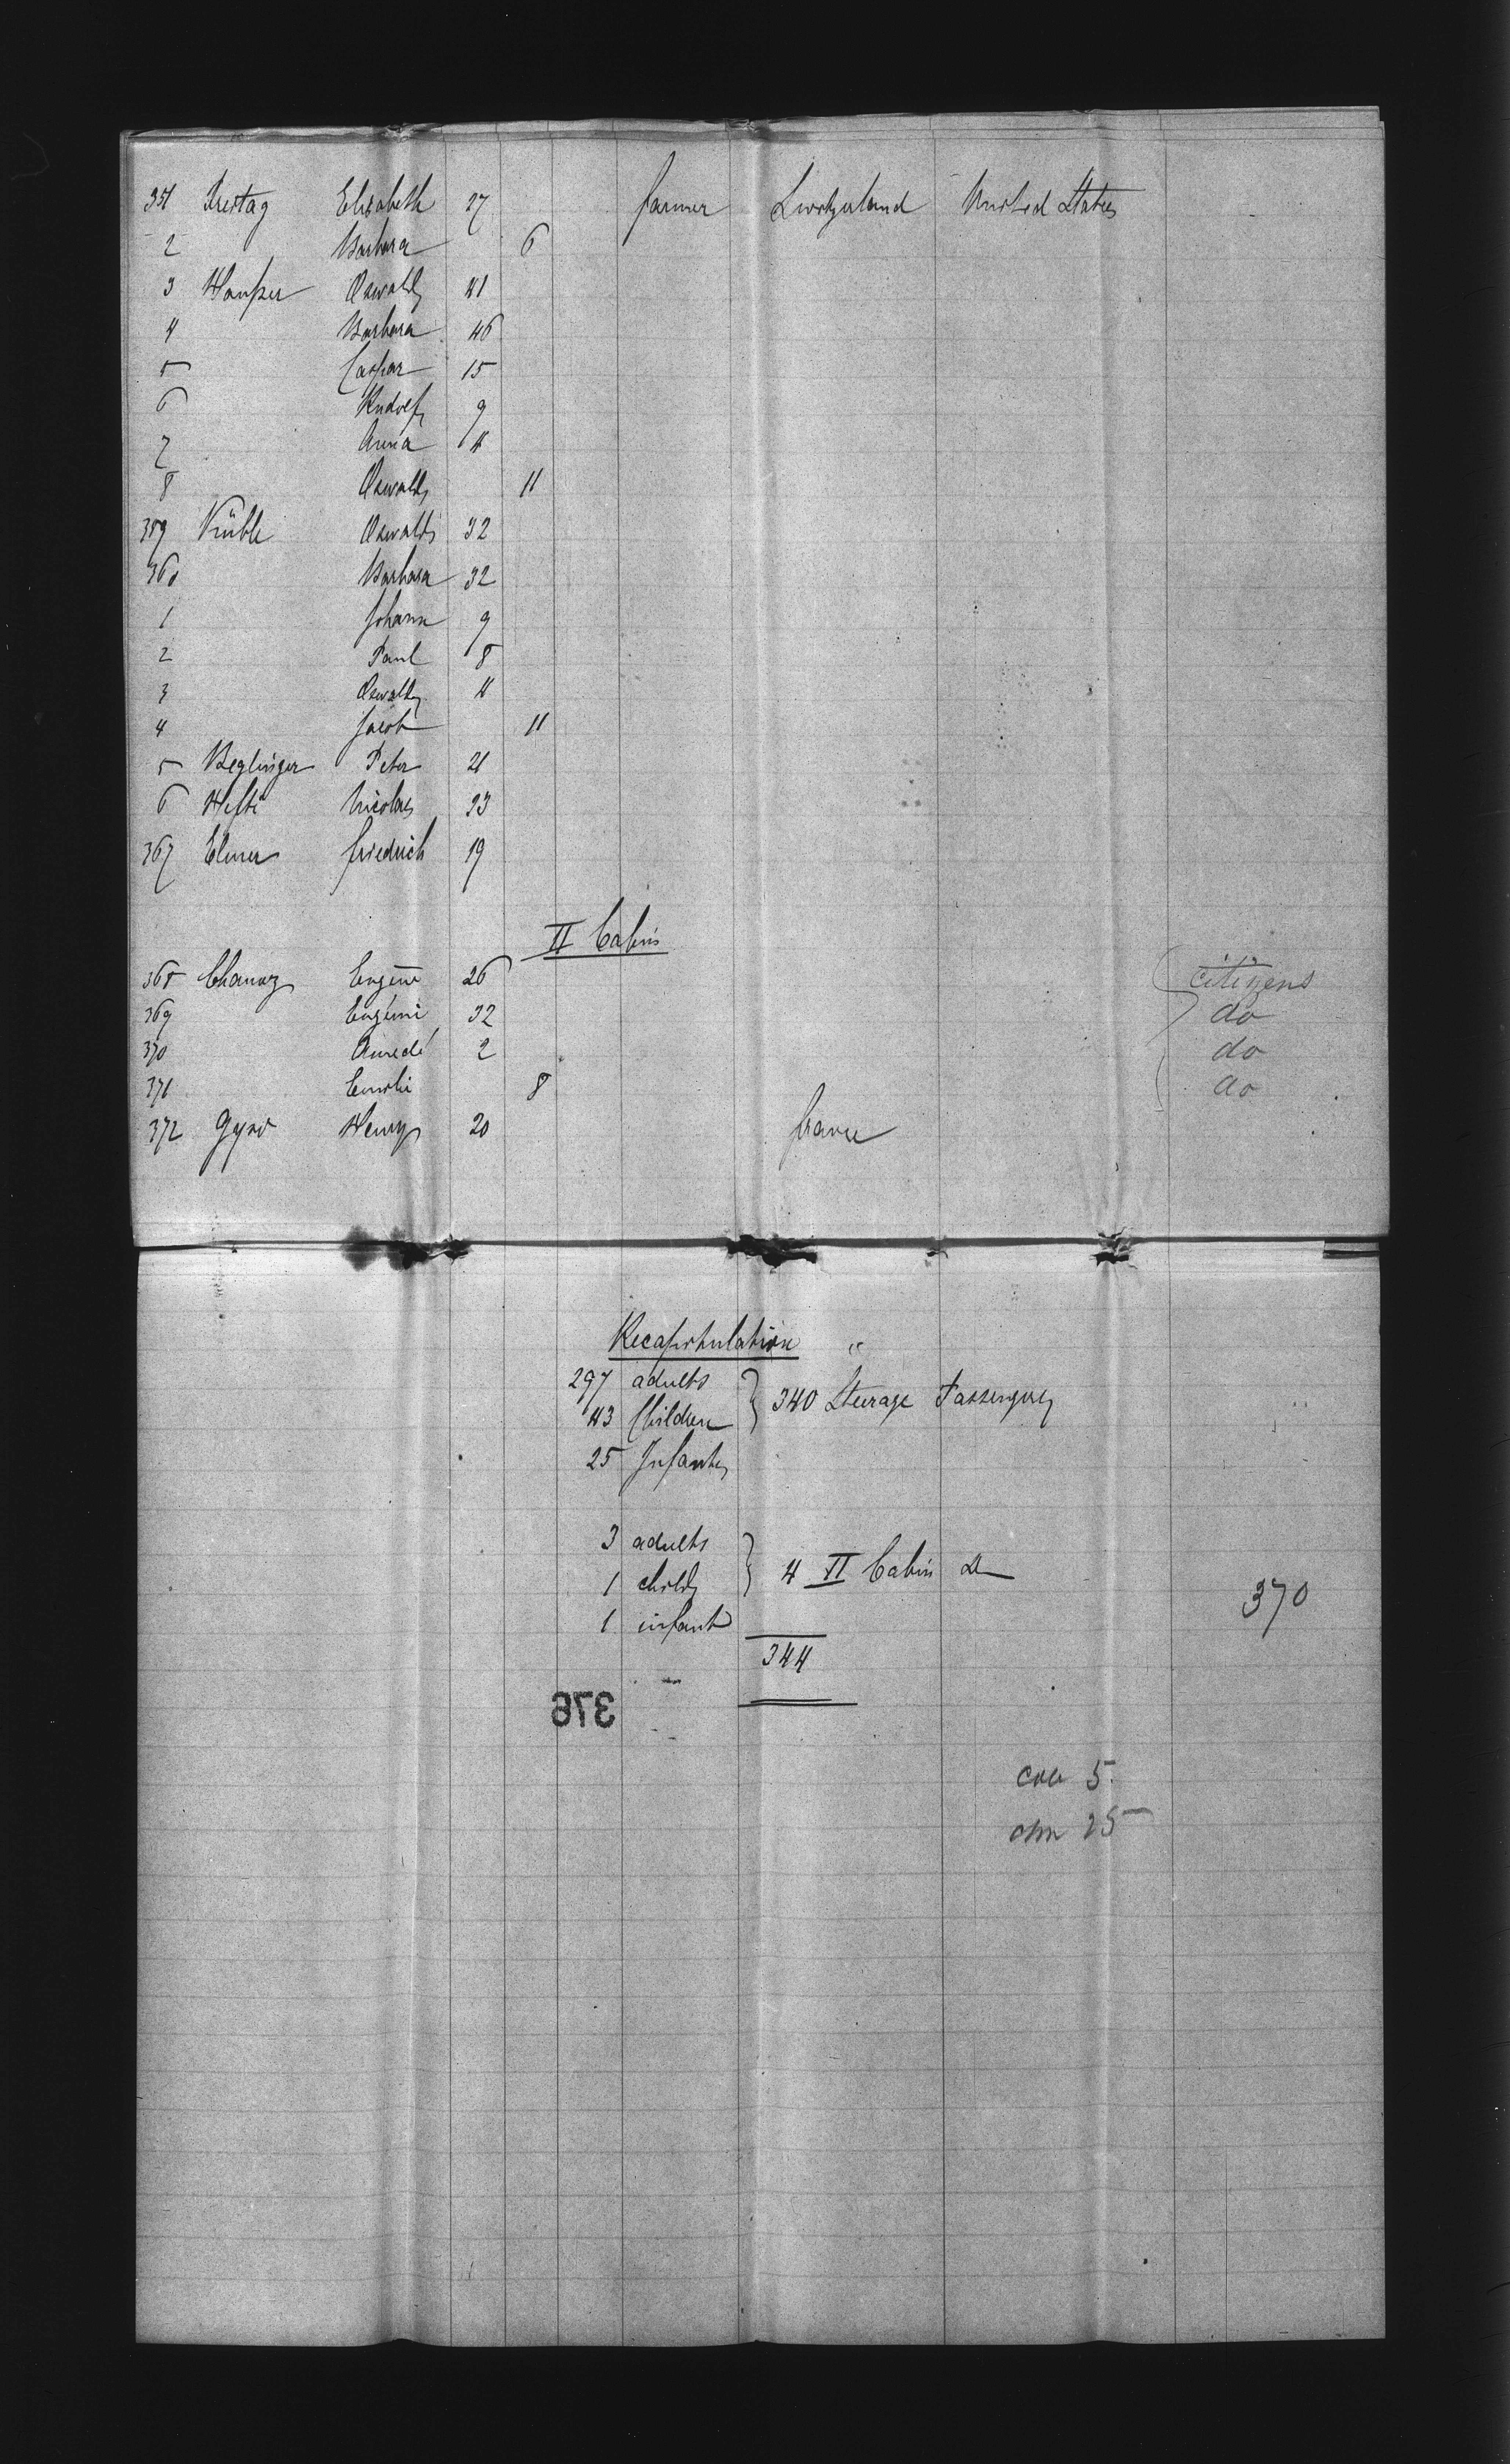 351 Freitag Elisabeth 27 farmer Switzerland United States
2 Barbara 6
3 Hauser Oswald 41
4 Barbara 46
5 Caspar 15
6 Rudolf 9
7 Anna 4
8 Oswald 11
359 Oswald 32
360 Barbara 32
1 Johann 9
2 Paul 8
3 Oswald 4
4 Jacob 11
5 Beglinger Peter 21
6 Hefti Nicolas 23
367 Elmer Friedrich 19
II Cabin
368 Eugene 26 citizens
369 Eugenie 32 do
370 Amedé 2 do
371 Emilie 8 do
372 Henry 20 France
Recapitulation "
297 adults
43 Children } 340 Steerage Passengers
25 Infants
3 adults
1 child } 4 II Cabin do
370
1 infant
344
376
5.
25